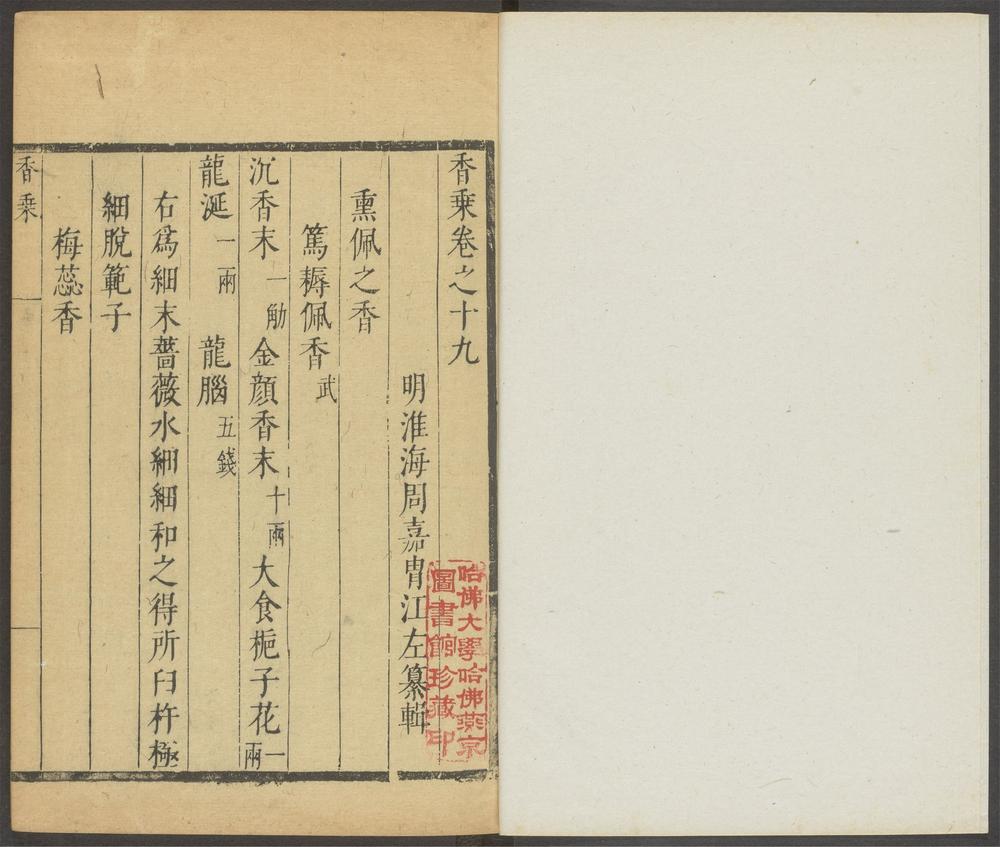 香乗卷之十九
明淮海周嘉胄江左纂輯
熏佩之香
篤耨佩香武
沉香末一觔金顔香末十兩大食梔子花一兩
龍涎一兩龍腦五錢
右爲細末薔薇水細細和之得所臼杵極
細脫範子
梅蕊香
香乗
哈佛大學哈佛燕京
圖書館珍藏印